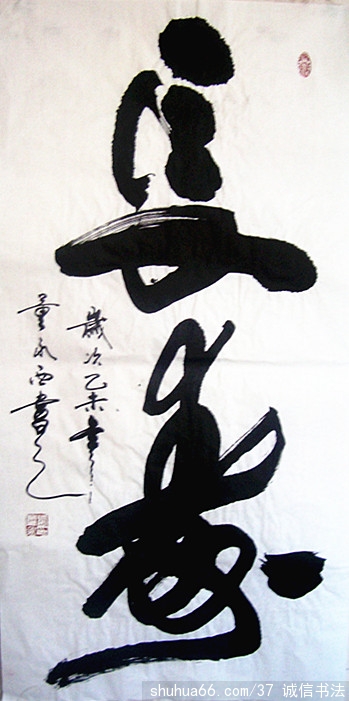 長壽
歲次乙未年
董永西書之
shuhua66.com/37 诚信书法